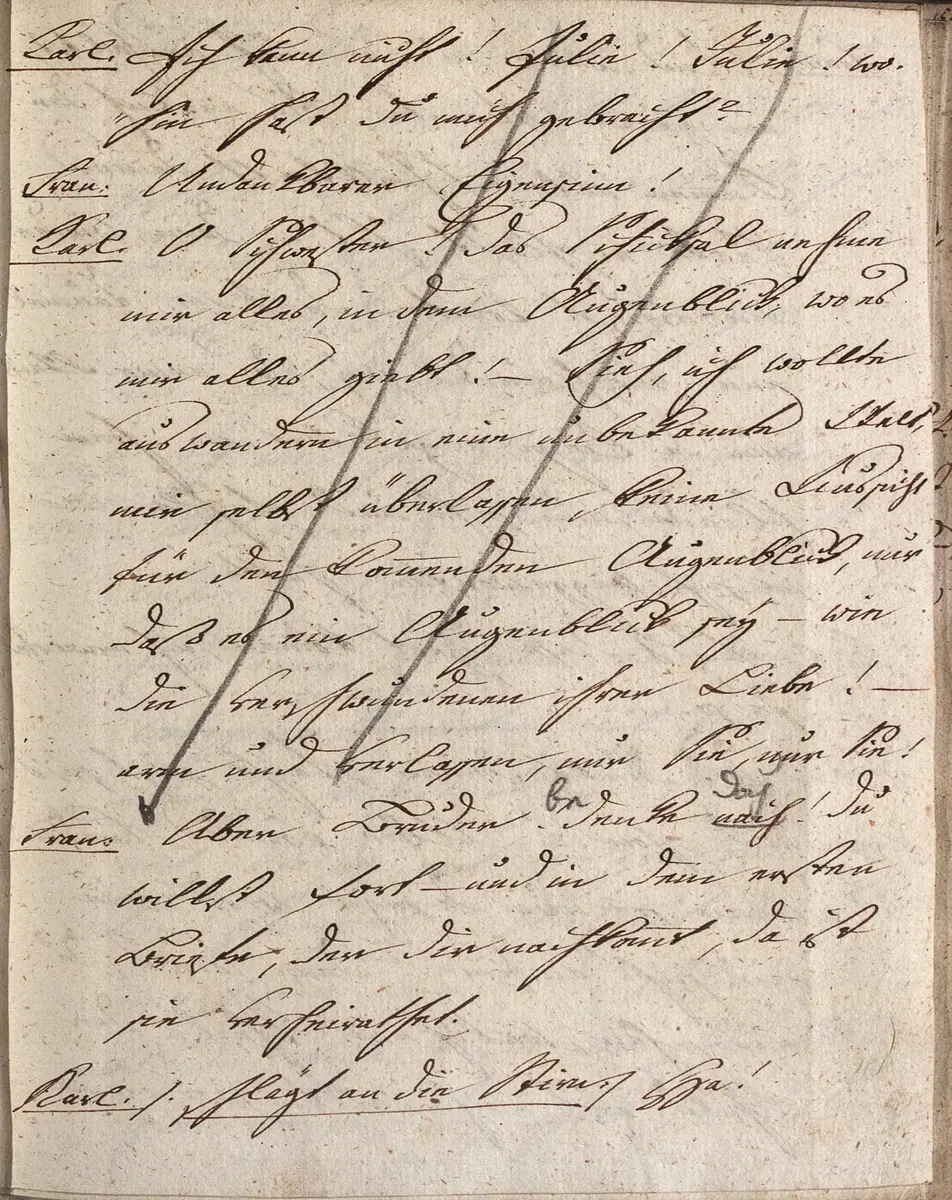 Karl. Ich kann nicht! Julie! Julie! wo-
hin hast du mich gebracht?
Fran: Undankbarer Eigensinn!
Karl. O Schwester! das Schicksal nehme
mir alles, in dem Augenblick, wo es
mir alles giebt! – Sieh, ich wollte
auswandern in eine unbekannte Welt,
mir selbst überlassen, keine Aussicht
für den kommenden Augenblick, nur
daß es ein Augenblick sey – wie
die verschwundenen ihrer Liebe! –
arm und verlassen, nur Sie, nur Sie!
be doch
Fran: Aber Bruder! denke nach! du
willst fort – und in dem ersten
Briefe, der dir nachkömmt, da ist
sie verheirathet.
Karl. /: schlägt an die Stirn :/ Ha!